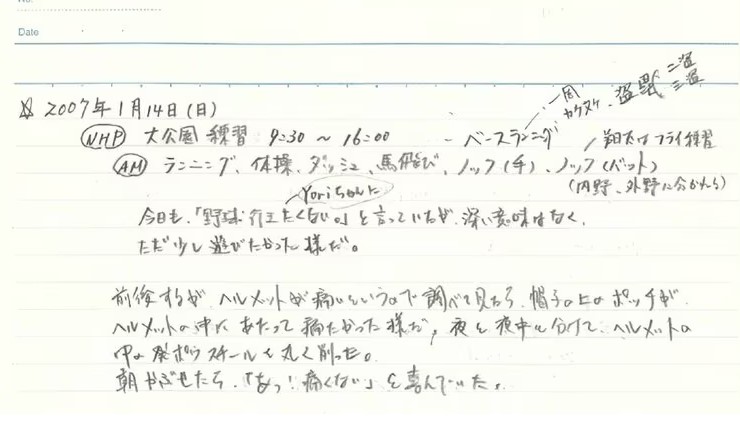 No.
Date
☆ 2007年1月14日(日)
一周 カケヌケ、盗塁 二盗 三盗
NHP 大公園 練習 9:30 ~ 16:00 - ベースランニング
翔太はフライ練習
AM ランニング、体操、ダッシュ、馬飛び、ノック(手)、ノック(バット)
(内野、外野に分かれる)
Yoriちゃんに
今日も、「野球 行きたくない。」と言っていたが、深い意味はなく、
ただ少し遊びたかった様だ。
前後するが、ヘルメットが痛いというので調べて見たら、帽子の上のポッチが、
ヘルメットの中に あたって痛たかった様だ、夜と夜中に分けて、ヘルメットの
中の発ポウスチールを丸く削った。
朝かぶせたら、「あっ!痛くない」と喜んでいた。